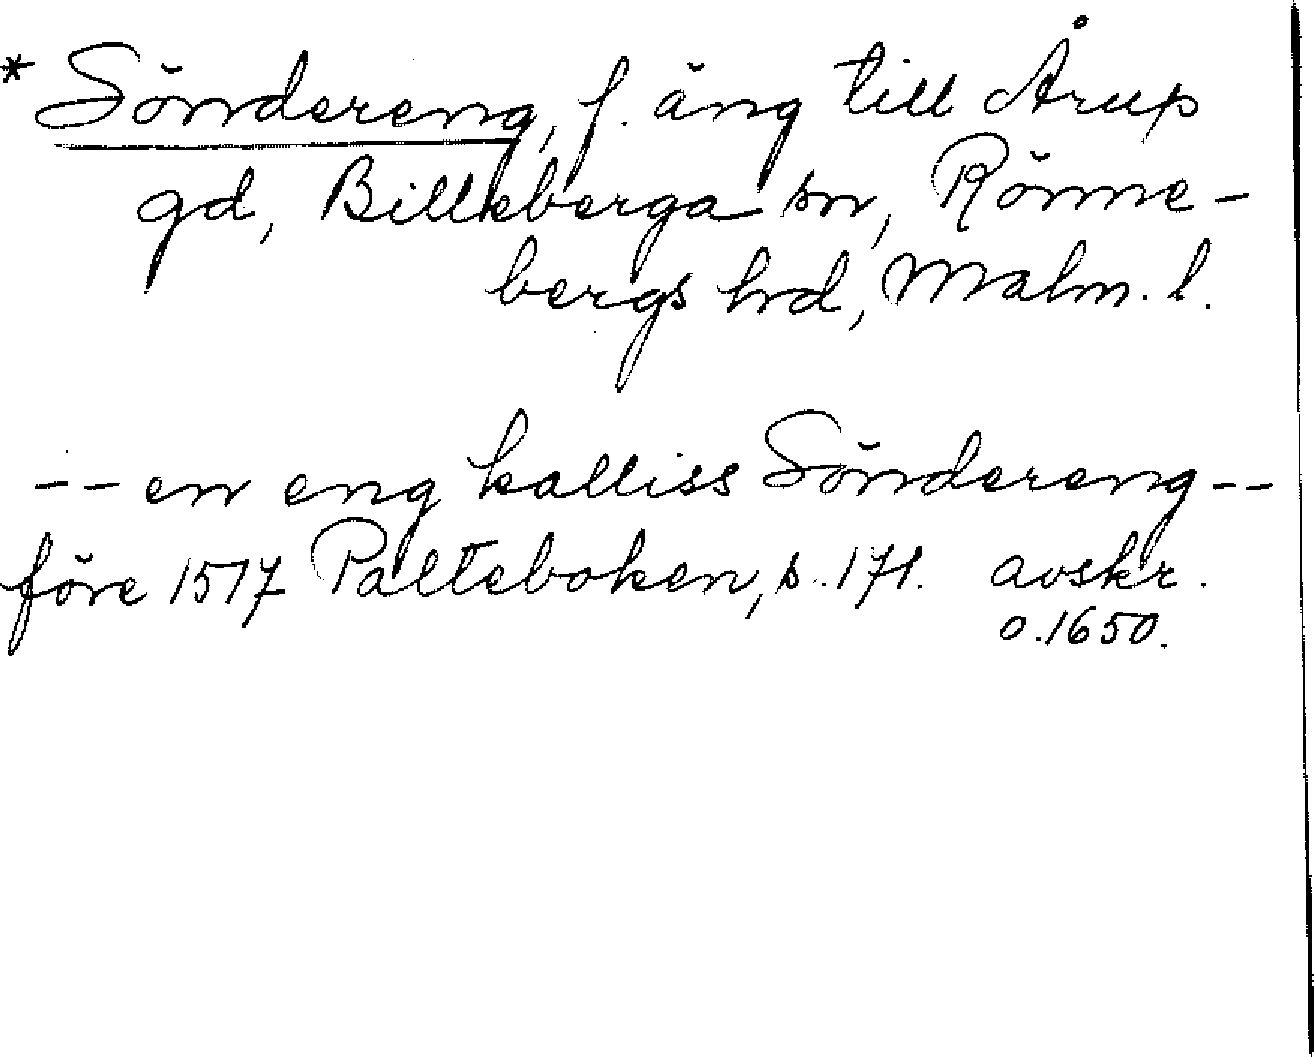 *Söndereng, f. äng till Årup
gd, Billeberga sn, Rönne-
bergs hd, Malm. l.
-- en eng kalliss Söndereng --
före 1517 Palteboken, s. 171. avskr.
o. 1650.